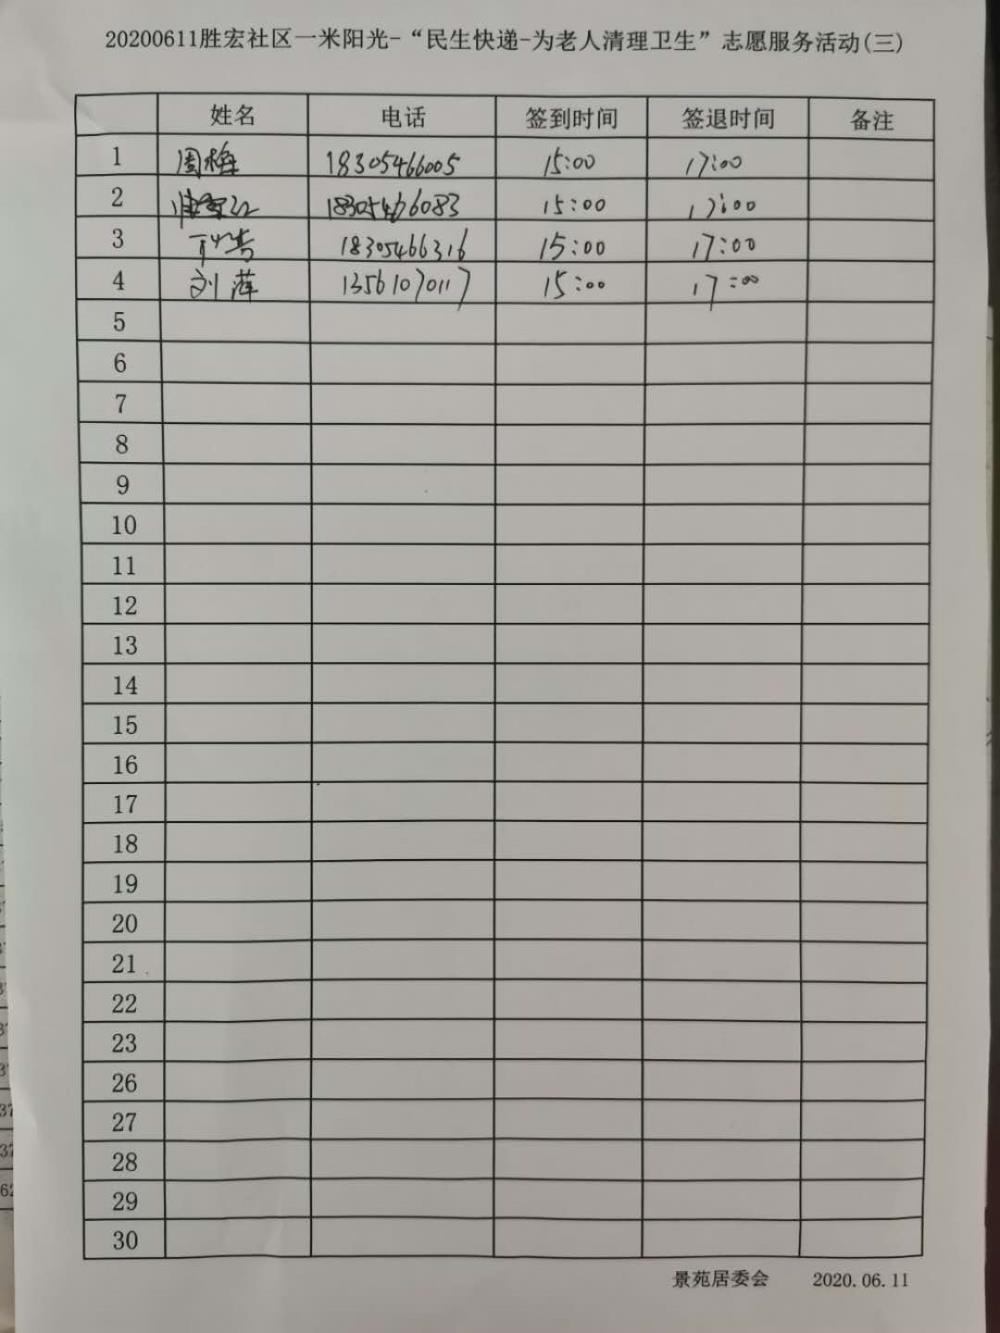 20200611胜宏社区一米阳光-“民生快递-为老人清理卫生”志愿服务活动(三)
姓名 电话 签到时间 签退时间 备注
1 周梅 18305466005 15:00 17:00
2 18305466083 15:00 17:00
3 18305466316 15:00 17:00
4 刘萍 13561070117 15:00 17:00
5
6
7
8
9
10
11
12
13
14
15
16
17
18
19
20
21
22
23
26
27
28
29
30
景苑居委会 2020.06.11